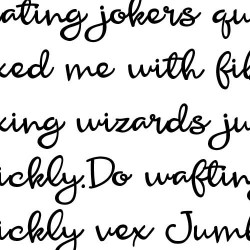 ating jokers qu
xed me with fil
xing wizards ju
ickly.Do wafting
ickly vex Jumb